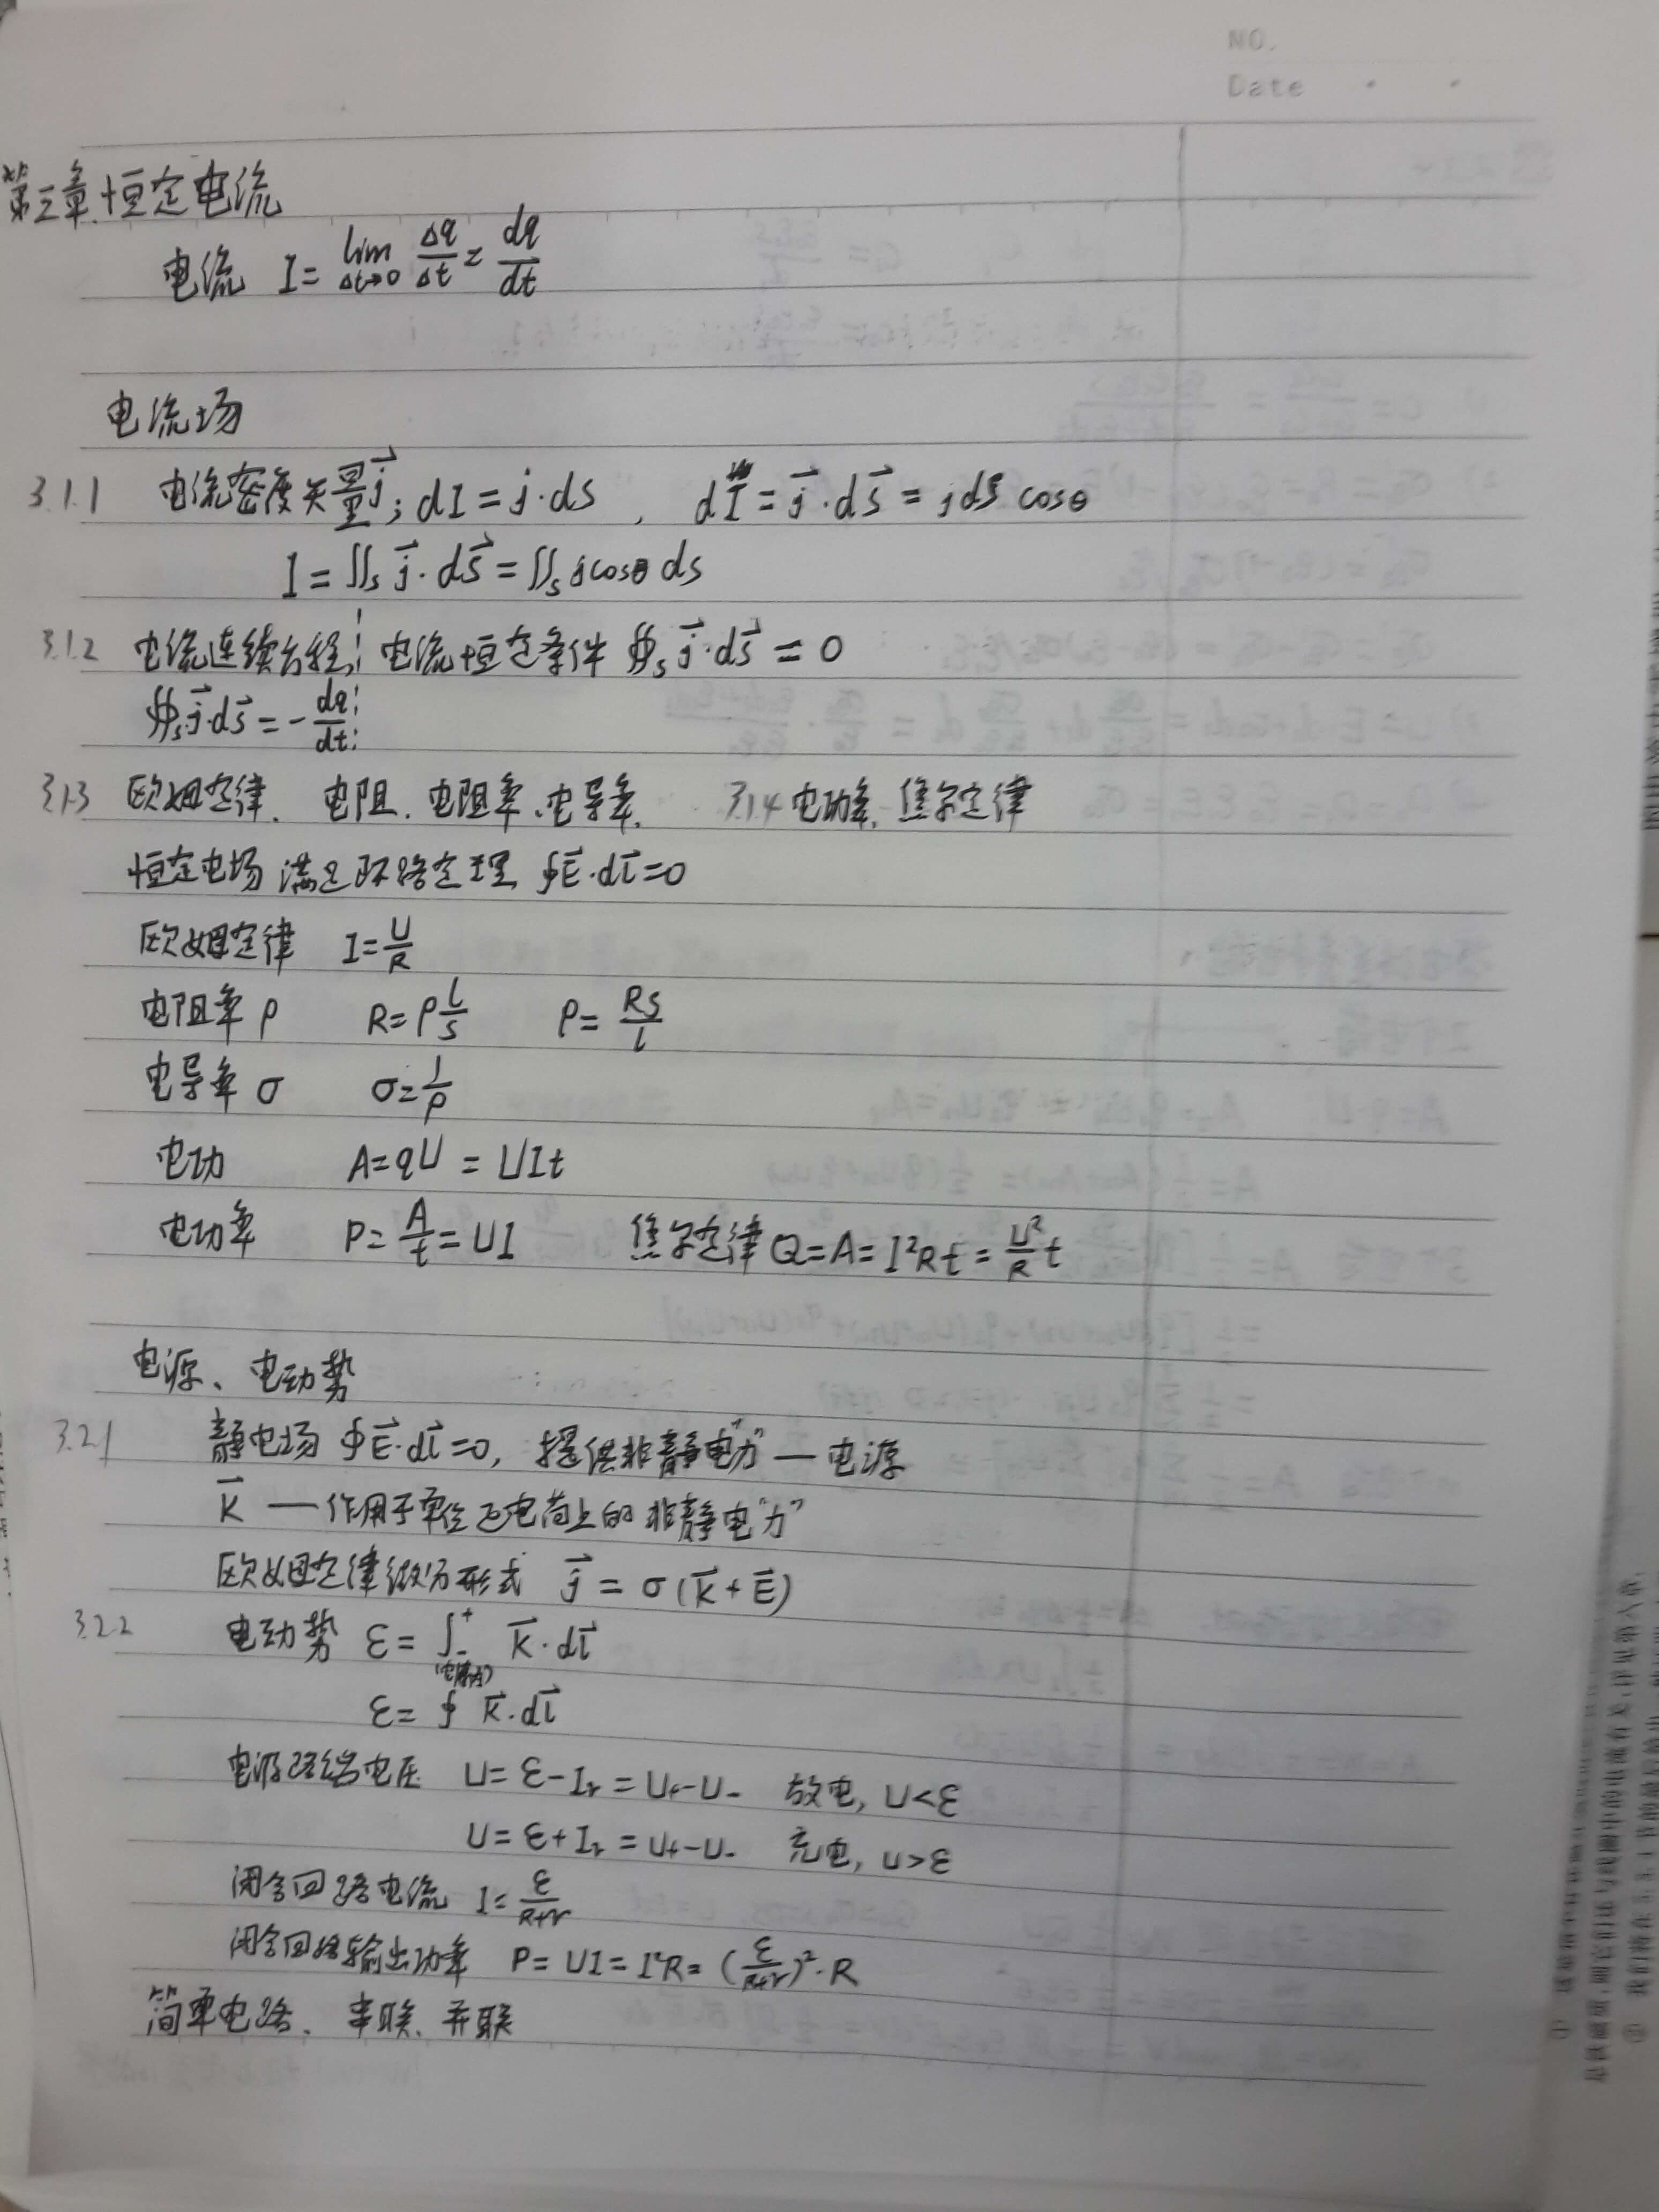 NO.
Date
第三章 恒定电流
电流 I = lim Δt→0 Δq/Δt = dq/dt
电流场
3.1.1 电流密度矢量 j⃗; dI = j·ds , dI = j⃗·ds⃗ = jds cosθ
I = ∬s j⃗·ds⃗ = ∬s jcosθ ds
3.1.2 电流连续方程 电流恒定条件 ∯s j⃗·ds⃗ = 0
∯s j⃗·ds⃗ = -dq/dt
3.1.3 欧姆定律、电阻、电阻率、电导率、 3.1.4 电功率、焦尔定律
恒定电场满足环路定理 ∮E⃗·dl⃗=0
欧姆定律 I = U/R
电阻率 ρ R = ρ l/s ρ = RS/l
电导率 σ σ = 1/ρ
电功 A = qU = UIt
电功率 P = A/t = UI 焦尔定律 Q = A = I²Rt = U²/R t
电源、电动势
3.2.1 静电场 ∮E⃗·dl⃗=0, 提供非静电“力” — 电源
K⃗ — 作用于单位正电荷上的非静电“力”
欧姆定律微分形式 j⃗ = σ(K⃗+E⃗)
3.2.2 电动势 ε = ∫₋⁺ (电源内) K⃗·dl⃗
ε = ∮ K⃗·dl⃗
电源路端电压 U = ε-Ir = U₊-U₋ 放电, U<ε
U = ε+Ir = U₊-U₋ 充电, U>ε
闭合回路电流 I = ε/(R+r)
闭合回路输出功率 P = UI = I²R = (ε/(R+r))²·R
简单电路、串联、并联